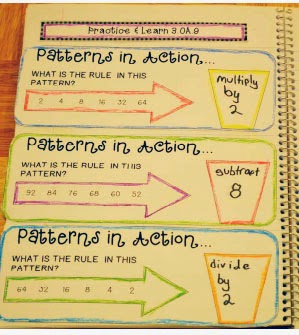 Practice & Learn 3.OA.9
Patterns in Action...
WHAT IS THE RULE IN THIS
PATTERN?
2 4 8 16 32 64
multiply
by
2
Patterns in Action...
WHAT IS THE RULE IN THIS
PATTERN?
92 84 76 68 60 52
subtract
8
Patterns in Action...
WHAT IS THE RULE IN THIS
PATTERN?
64 32 16 8 4 2
divide
by
2